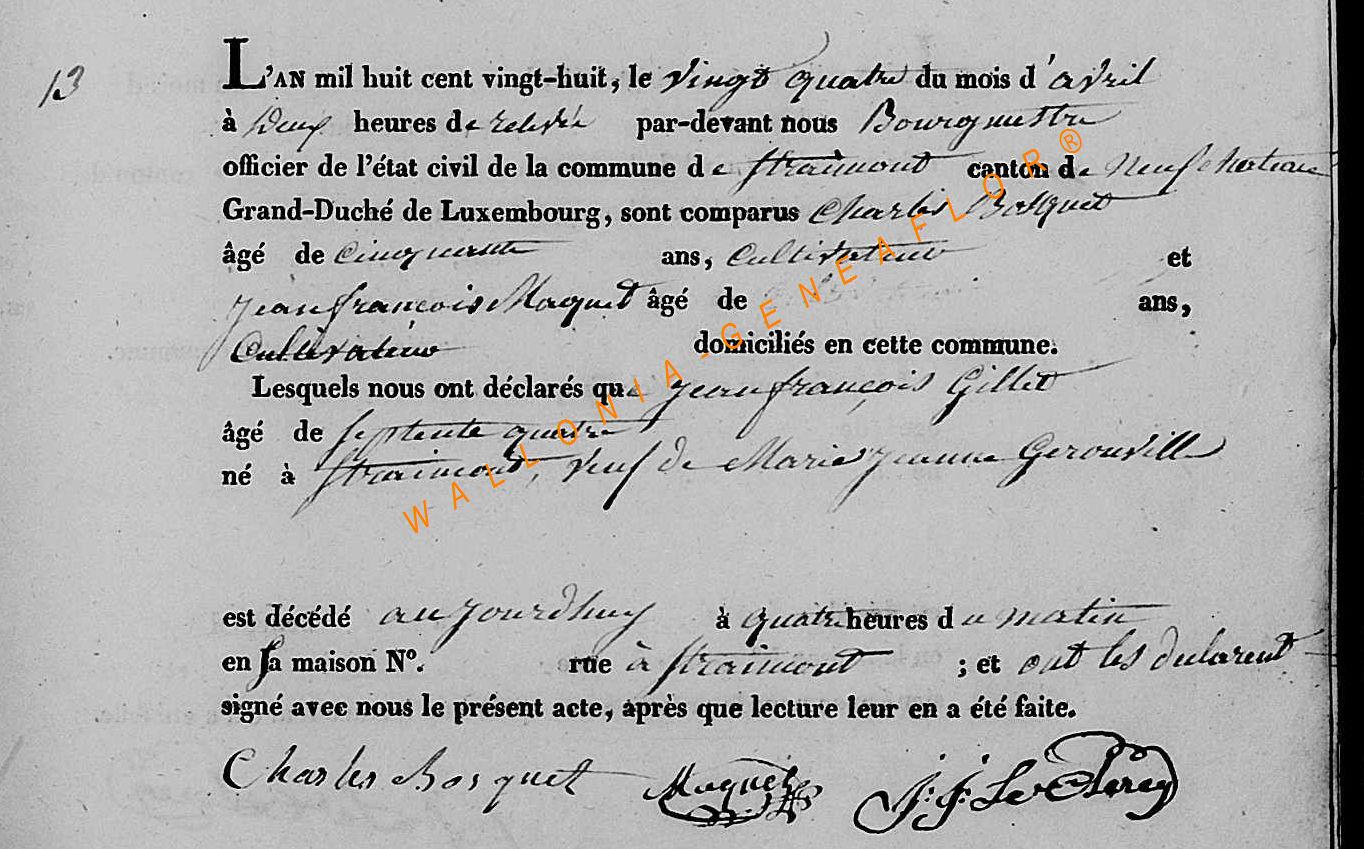 13
L'AN mil huit cent vingt-huit, le vingt quatre du mois d'avril
à deux heures de relevée par-devant nous Bourgmestre
officier de l'état civil de la commune de straimont canton de Neufchateau
Grand-Duché de Luxembourg, sont comparus Charles Bosquet
âgé de cinquante ans, Cultivateur et
jean françois Maquet âgé de ans,
Cultivateur domiciliés en cette commune.
Lesquels nous ont déclarés que jean françois Gillet
âgé de septente quatre
né à straimont, veuf de Marie jeanne Gerouville
est décédé aujourdhuy à quatre heures du matin
en sa maison N°. rue à straimont ; et ont les declarent
signé avec nous le présent acte, après que lecture leur en a été faite.
Charles Bosquet Maquet J. J. Le Clerey
WALLONIA-GENEAFLOR®